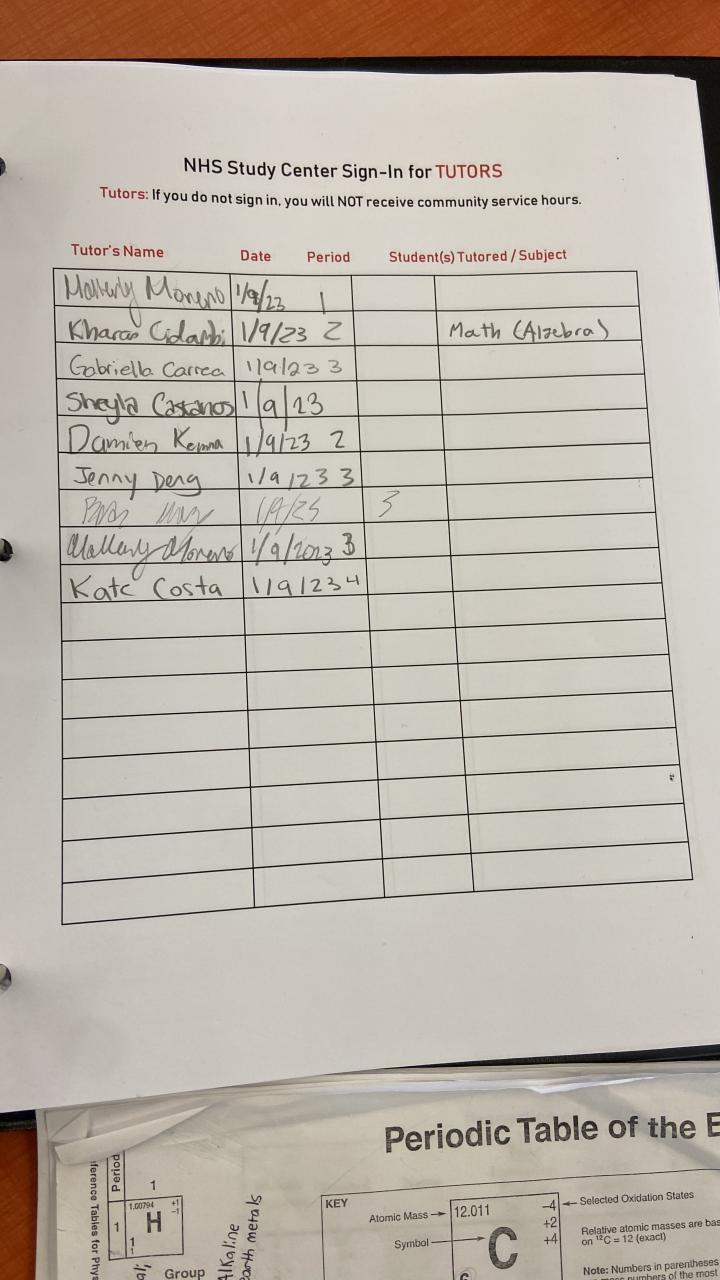 NHS Study Center Sign-In for TUTORS
Tutors: If you do not sign in, you will NOT receive community service hours.
Tutor's Name Date Period Student(s) Tutored / Subject
Mallerly Moreno 1/9/23 1
Kharan Cidambi 1/9/23 2 Math (Algebra)
Gabriella Correa 1/9/23 3
Sheyla Castanos 1/9/23
Damien Kenna 1/9/23 2
Jenny Deng 1/9/23 3
3
Mallerly Moreno 1/9/2023 3
Kate Costa 1/9/23 4
Periodic Table of the E
KEY
Atomic Mass → 12.011 -4 ← Selected Oxidation States
+2
+4
Symbol → C
Relative atomic masses are bas
on ¹²C = 12 (exact)
Note: Numbers in parentheses
numbers of the most
6
ference Tables for Phys
Period
1
1
1.00794 +1
-1
H
1
Group
Alkaline
earth metals